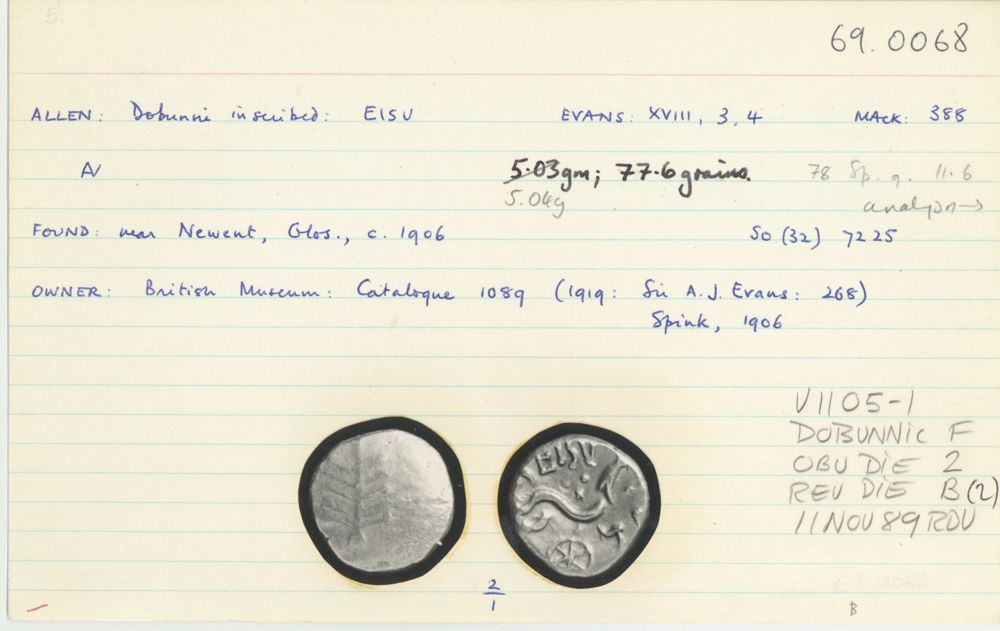 5.
69.0068
ALLEN: Dobunni inscribed: EISU EVANS: XVIII, 3, 4 MACK: 388
AV 5.03gm; 77.6 grains. 78 Sp. g. 11.6
5.04g analysis→
FOUND: near Newent, Glos., c. 1906 SO (32) 7225
OWNER: British Museum: Catalogue 1089 (1919: Sir A.J. Evans: 268)
Spink, 1906
V1105-1
DOBUNNIC F
OBV DIE 2
REV DIE B(2)
11NOV89RDV
EISU
2
1
B